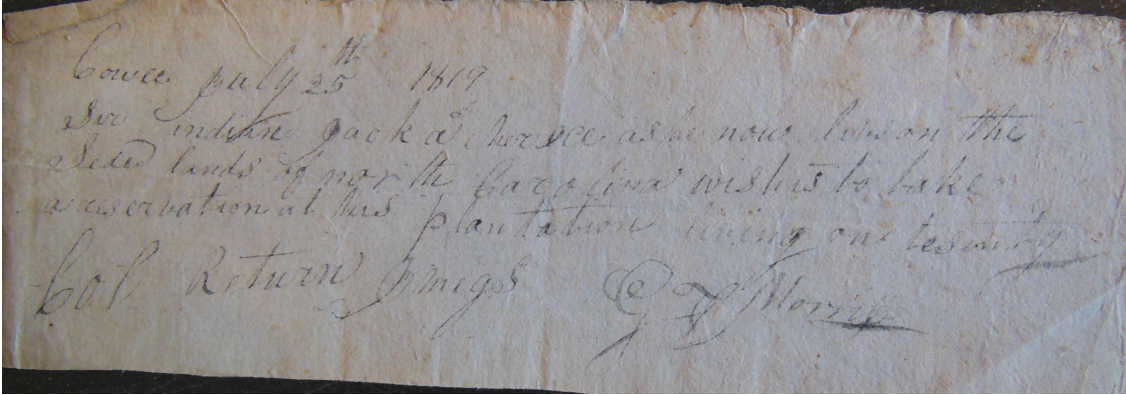 Cowee July 25th 1819
Sir indian Jack a Cherokee as he now lives on the
Seded lands of north Carolina wishis to take
a reservation at his plantation living on
Col Return J Meigs G F Morris